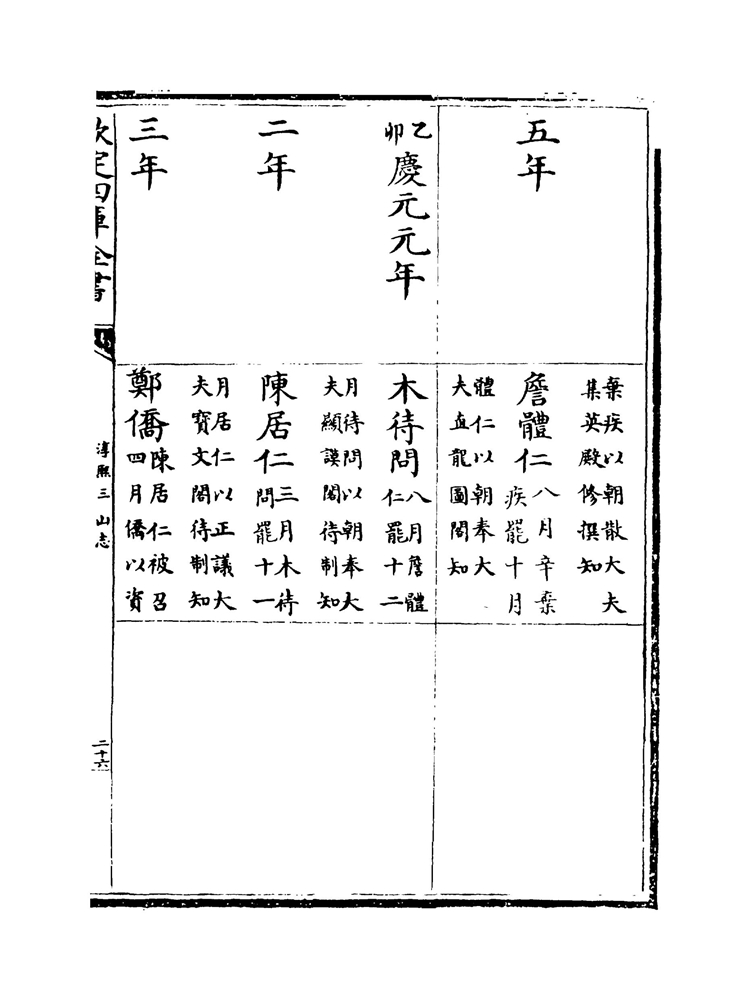 棄疾以朝散大夫
集英殿修撰知
五年
詹體仁
八月辛棄
疾罷十月
體仁以朝奉大
夫直龍圖閣知
乙
卯
慶元元年
木待問
八月詹體
仁罷十二
月待問以朝奉大
夫顯謨閣待制知
二年
陳居仁
三月木待
問罷十一
月居仁以正議大
夫寶文閣待制知
三年
鄭僑
陳居仁被召
四月僑以資
欽定四庫全書
淳熙三山志
二十六